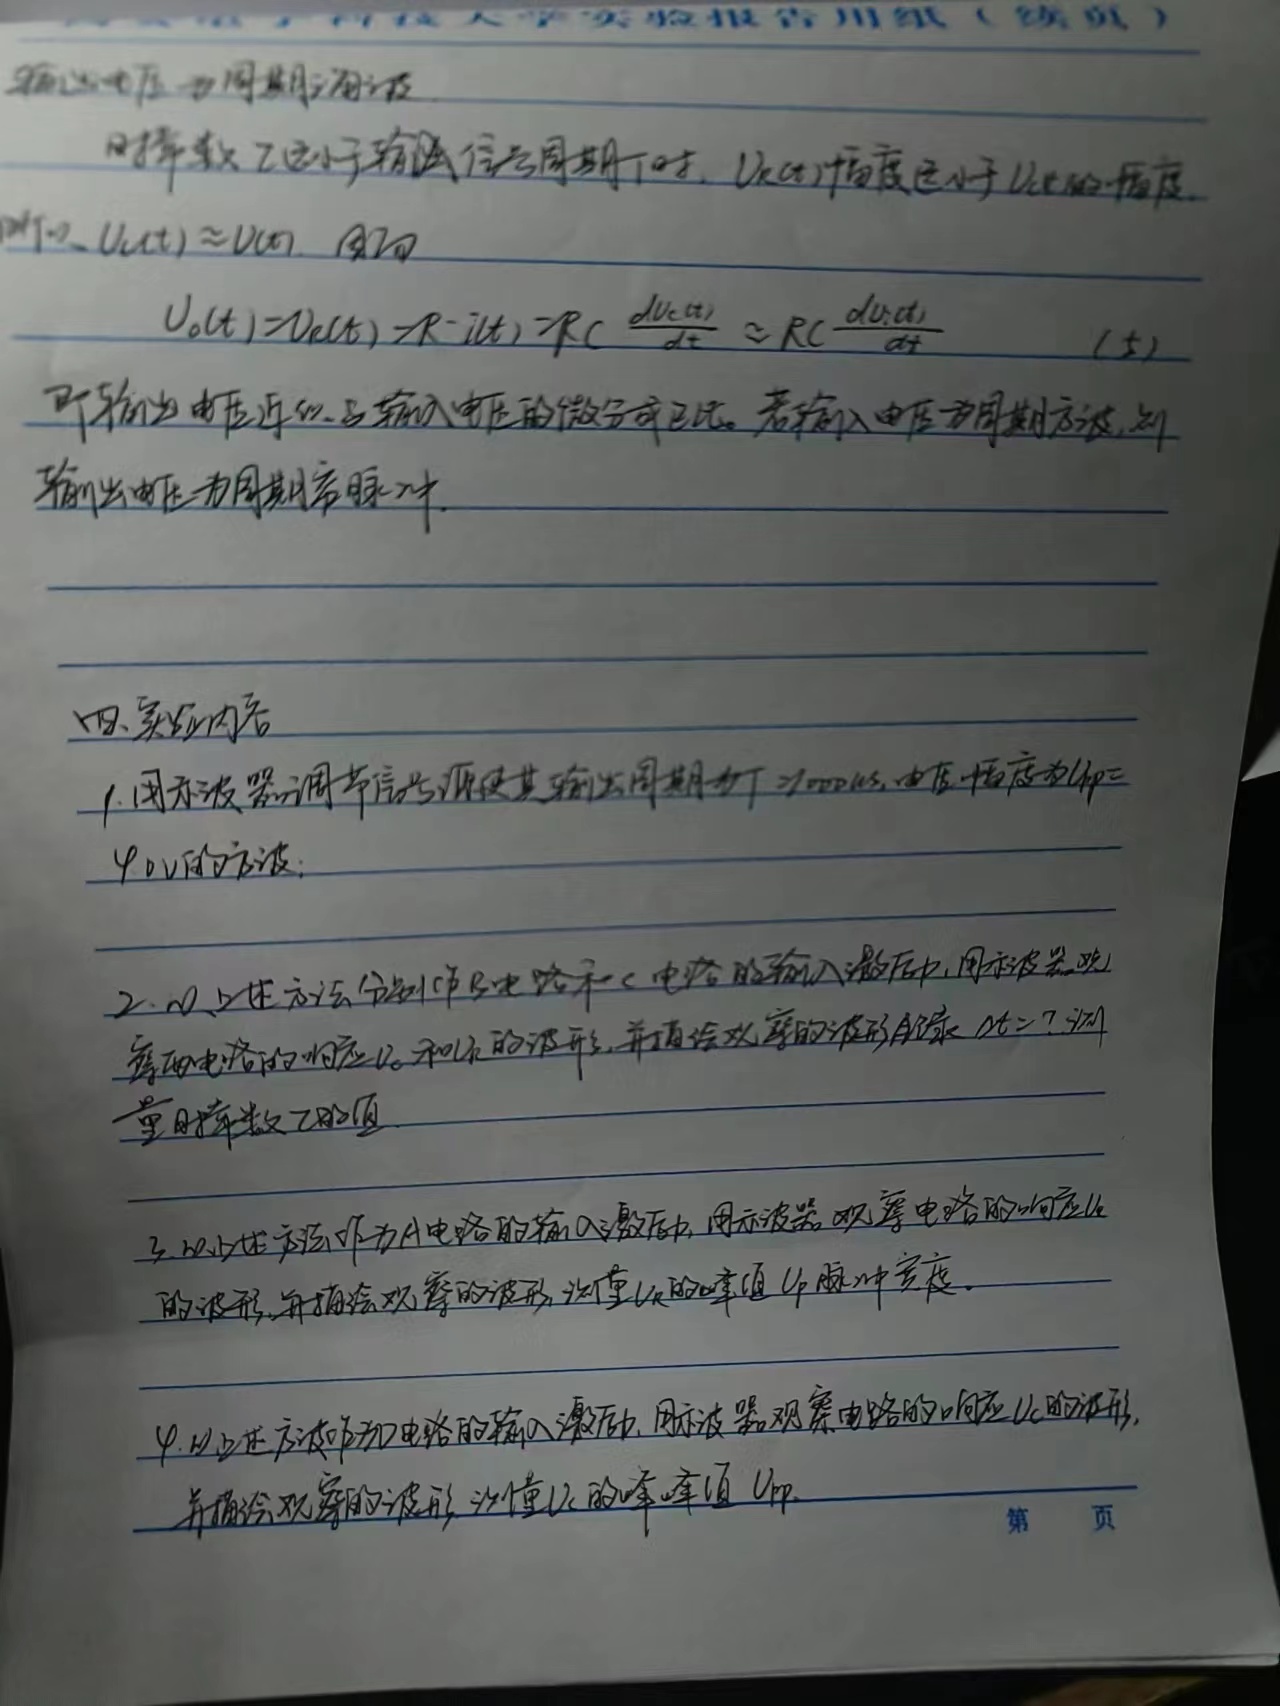 电子科技大学实验报告用纸（续页）
输出电压为周期三角波
时常数τ远小于输入信号周期T时，UR(t)幅度远小于Uc(t)的幅度，
Uc(t)≈U(t). 因为
Uo(t)=UR(t)=R·i(t)=RC dUc(t)/dt ≈ RC dUi(t)/dt (5)
即输出电压近似与输入电压的微分成正比。若输入电压为周期方波，则
输出电压为周期窄脉冲.
四、实验内容
1.用示波器调节信号源使其输出周期为T=1000us,电压幅度为Upp=
4.0V的方波;
2.以上述方法分别作B电路和C电路的输入激励,用示波器观
察两电路的响应Uc和UR的波形,并描绘观察的波形 Δt=？测
量时常数τ的值
3.以上述方法作为A电路的输入激励,用示波器观察电路的响应UR
的波形,并描绘观察的波形,测量UR的峰值Up脉冲宽度。
4.以上述方波作为D电路的输入激励,用示波器观察电路的响应Uc的波形,
并描绘观察的波形,测量Uc的峰峰值Upp.
第 页